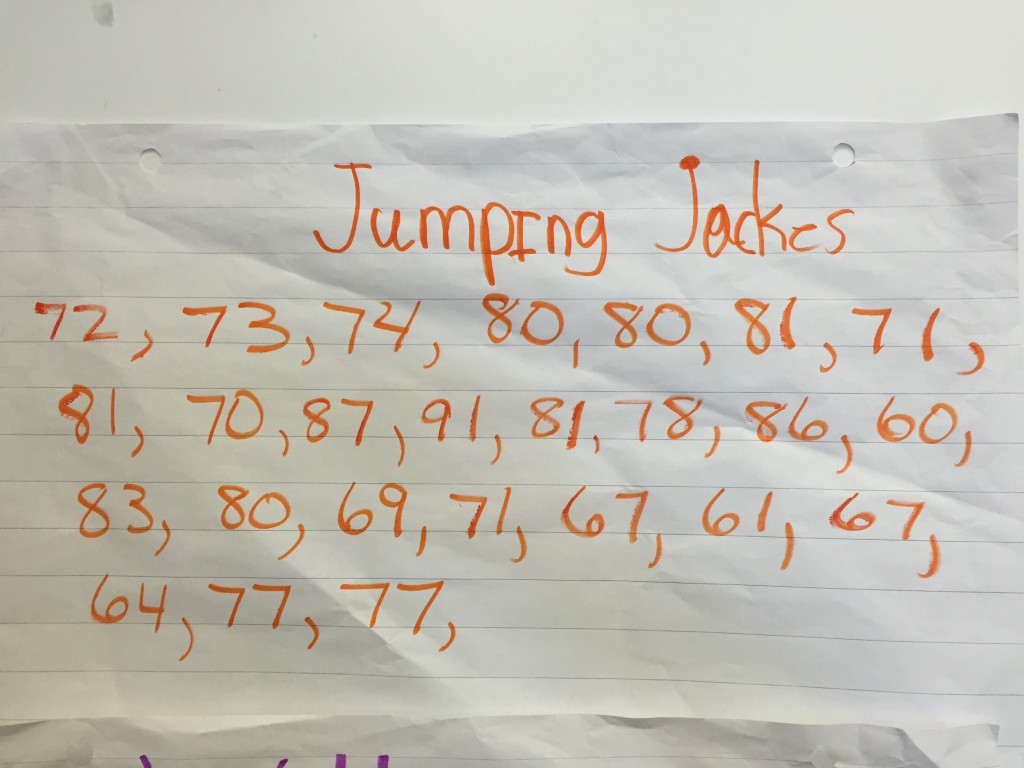 Jumping Jackes
72, 73, 74, 80, 80, 81, 71,
81, 70, 87, 91, 81, 78, 86, 60,
83, 80, 69, 71, 67, 61, 67,
64, 77, 77,